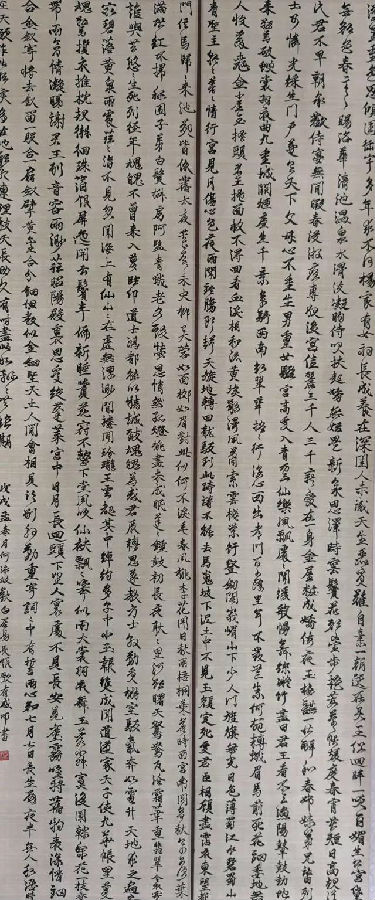 色思傾國御宇多年求不得楊家有女初長成養在深閨人未識天生麗質難自棄一朝選在君王側回眸一笑百媚生六宮粉黛
無顏色春寒賜浴華清池溫泉水滑洗凝脂侍兒扶起嬌無力始是新承恩澤時雲鬢花顏金步搖芙蓉帳暖度春宵春宵苦短日高起從此
君王不早朝承歡侍宴無閒暇春從春遊夜專夜後宮佳麗三千人三千寵愛在一身金屋妝成嬌侍夜玉樓宴罷醉和春姊妹弟兄皆列
土可憐光彩生門戶遂令天下父母心不重生男重生女驪宮高處入青雲仙樂風飄處處聞緩歌慢舞凝絲竹盡日君王看不足漁陽鼙鼓動地
來驚破霓裳羽衣曲九重城闕煙塵生千乘萬騎西南行翠華搖搖行復止西出都門百餘里六軍不發無奈何宛轉蛾眉馬前死花鈿委地無
人收翠翹金雀玉搔頭君王掩面救不得回看血淚相和流黃埃散漫風蕭索雲棧縈紆登劍閣峨嵋山下少人行旌旗無光日色薄蜀江水碧蜀山
青聖主朝朝暮暮情行宮見月傷心色夜雨聞鈴腸斷聲天旋地轉回龍馭到此躊躇不能去馬嵬坡下泥土中不見玉顏空死處君臣相顧盡霑衣東望都
門信馬歸歸來池苑皆依舊太液芙蓉未央柳芙蓉如面柳如眉對此如何不淚垂春風桃李花開日秋雨梧桐葉落時西宮南內多秋草落葉
滿階紅不掃梨園子弟白髮新椒房阿監青娥老夕殿螢飛思悄然孤燈挑盡未成眠遲遲鐘鼓初長夜耿耿星河欲曙天鴛鴦瓦冷霜華重翡翠衾寒
誰與共悠悠生死別經年魂魄不曾來入夢臨邛道士鴻都客能以精誠致魂魄為感君王輾轉思遂教方士殷勤覓排空馭氣奔如電升天入地求之遍上
窮碧落下黃泉兩處茫茫皆不見忽聞海上有仙山山在虛無縹緲間樓閣玲瓏五雲起其中綽約多仙子小玉報雙成聞道漢家天子使九華帳里夢
魂驚攬衣推枕起徘徊珠箔銀屏迤邐開雲鬢半偏新睡覺花冠不整下堂來風吹仙袂飄飄舉猶似霓裳羽衣舞玉容寂寞淚闌干梨花一枝春
帶雨含情凝睇謝君王一別音容兩渺茫昭陽殿裏恩愛絕蓬萊宮中日月長回頭下望人寰處不見長安見塵霧唯將舊物表深情鈿
合金釵寄將去釵留一股合一扇釵擘黃金合分鈿但教心似金鈿堅天上人間會相見臨別殷勤重寄詞詞中有誓兩心知七月七日長生殿夜半無人私語時
在天願作比翼鳥在地願為連理枝天長地久有時盡此恨綿綿無絕期 戊戌孟春 白居易長恨歌